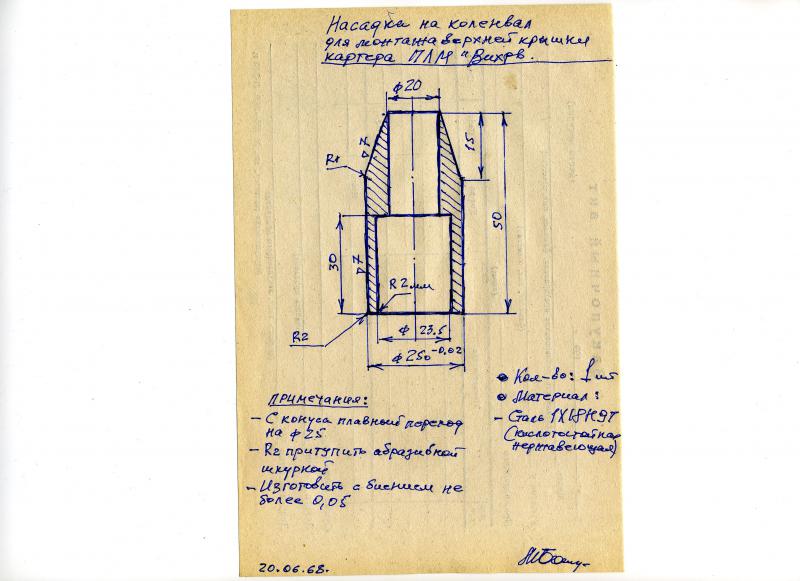 Насадка на коленвал
для монтажа верхней крышки
картера ПЛМ "Вихрь.
ф20
R1
▽7
15
50
30
▽7
R2 мм
R2
ф 23.5
ф25₀-0.02
Примечания:
– С конуса плавный переход
на ф25
– R2 притупить абразивной
шкуркой
– Изготовить с биением не
более 0,05
Кол-во: 1 шт
Материал:
– Сталь 1Х18Н9Т
(кислотостойкая
нержавеющая)
20.06.68.
закупочный акт